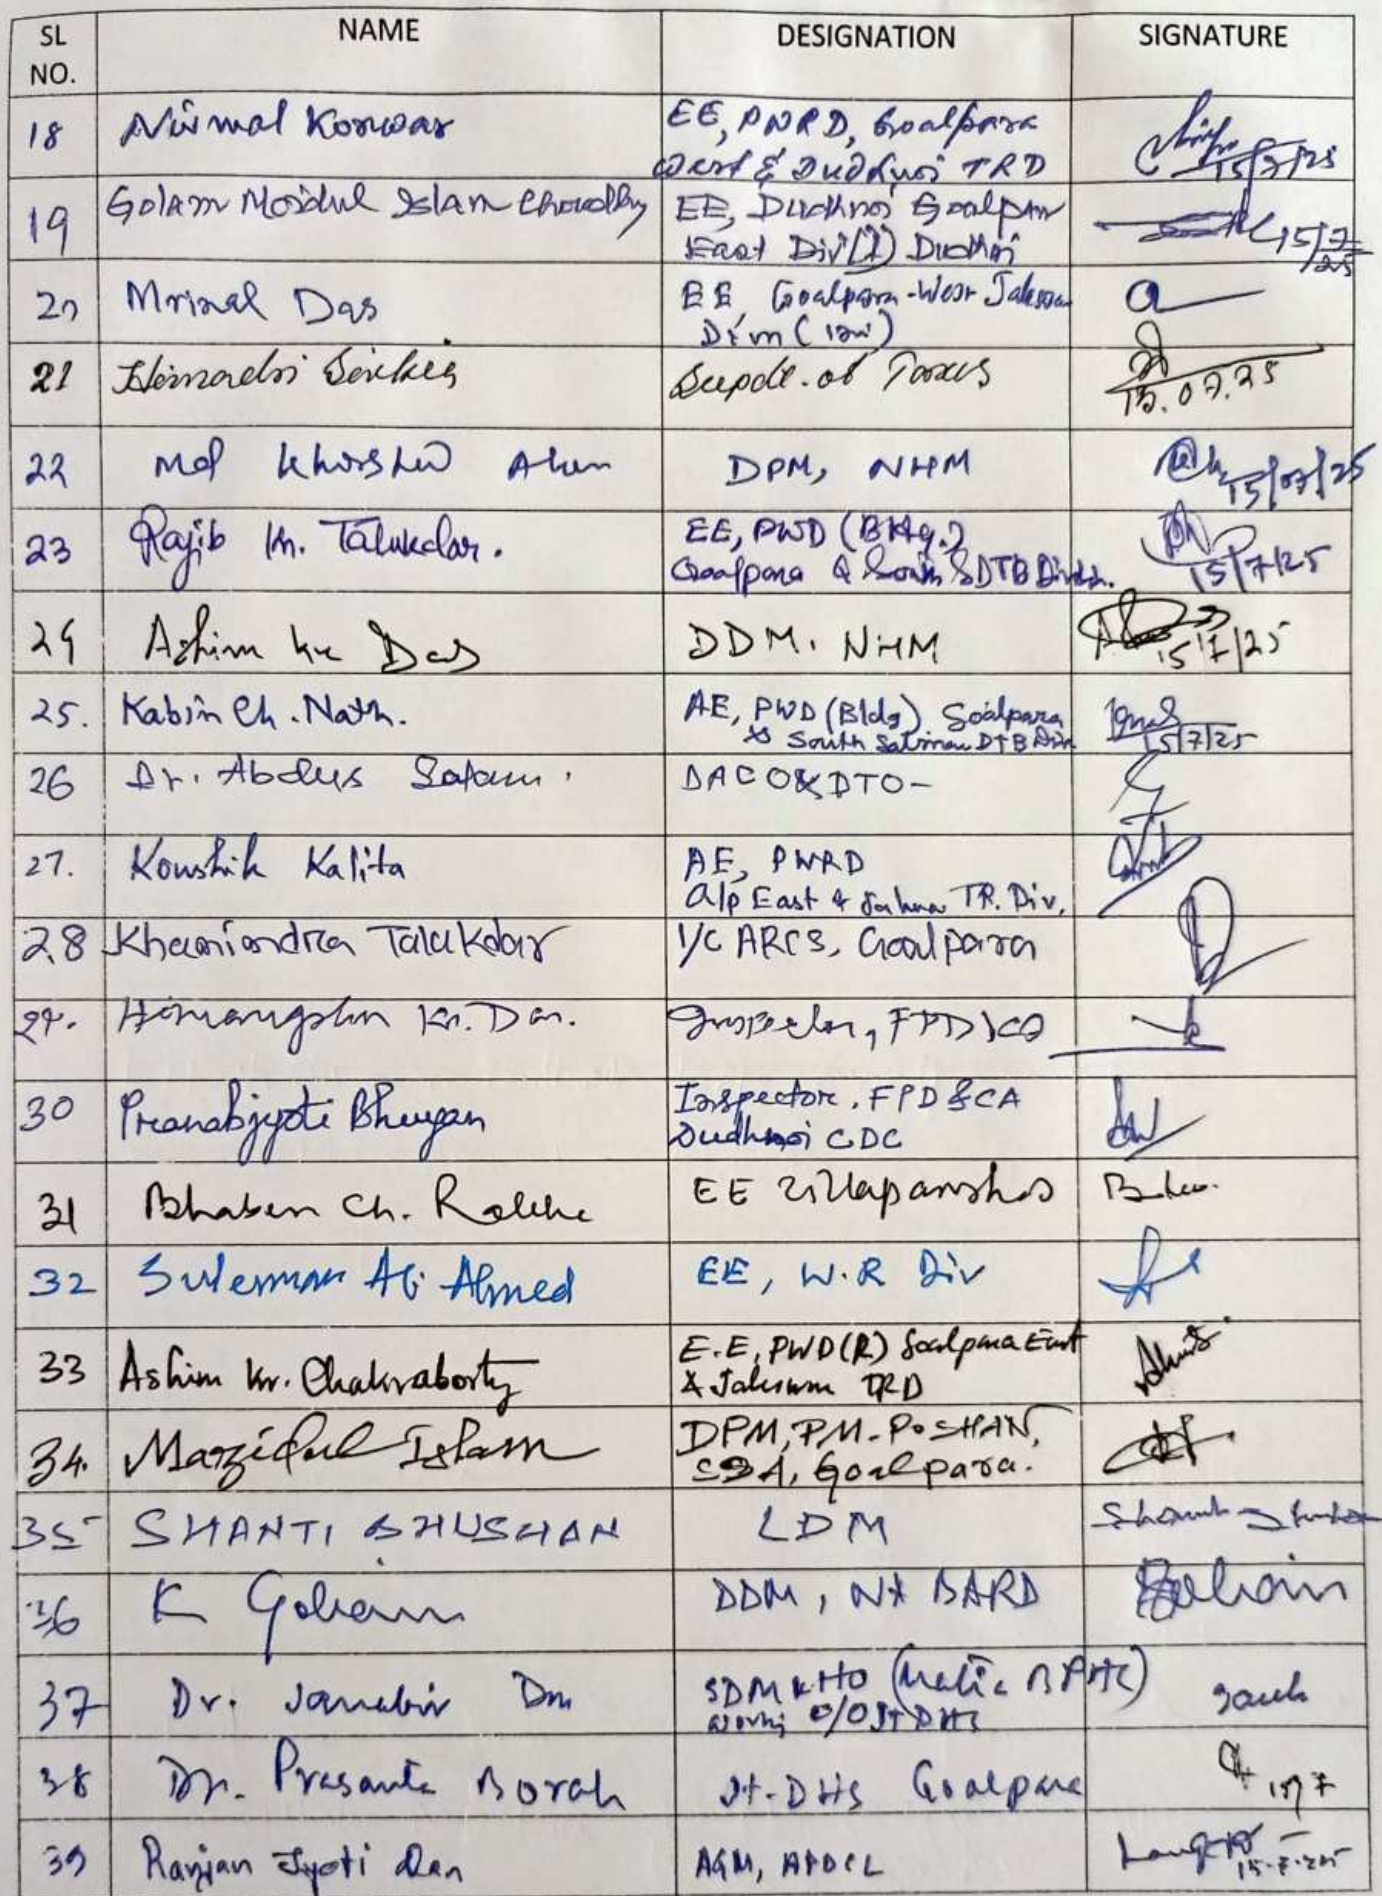 SL NO. NAME DESIGNATION SIGNATURE
18 Nirmal Konwar EE, PWRD, Goalpara
West & Dudhnoi TRD 15/7/25
19 Golam Moidul Islam Choudhury EE, Dudhnoi Goalpara
East Div(I) Dudhnoi 15/7/25
20 Mrinal Das EE, Goalpara-West Jaleswar
21 Himadri Supdt. of Taxes 15.07.25
22 Md Khurshid Alam DPM, NHM 15/07/25
23 Rajib Kr. Talukdar. EE, PWD (Bldg.)
Goalpara & South SDTB Divn. 15/7/25
24 Ashim Kr Das DDM. NHM 15/7/25
25. Kabin Ch. Nath. AE, PWD (Bldg) Goalpara
& South Salmara DTB Divn 15/7/25
26 Dr. Abdus Salam. DACO & DTO-
27. Koushik Kalita AE, PWRD
Glp East & TR. Div.
28 Khanindra Talukdar I/C ARCS, Goalpara
29. Himangshu Kr. Das. Inspector, FPD
30 Pranabjyoti Bhuyan Inspector, FPD & CA
Dudhnoi CDC
31 Bhaben Ch. EE Zilla parishad
32 Suleman Ali Ahmed EE, W.R Div
33 Ashim Kr. Chakraborty E.E, PWD(R) Goalpara East
& Jaleswar TRD
34. Mazidul Islam DPM, PM-POSHAN,
Goalpara.
35 SHANTI BHUSHAN LDM
36 K Gohain DDM, NABARD Gohain
37 Dr. SDM & HO (Matia BPHC)
O/O JT DHS
38 Dr. Prasanta Borah Jt. DHS Goalpara 15/7
39 Ranjan Jyoti Das AGM, APDCL